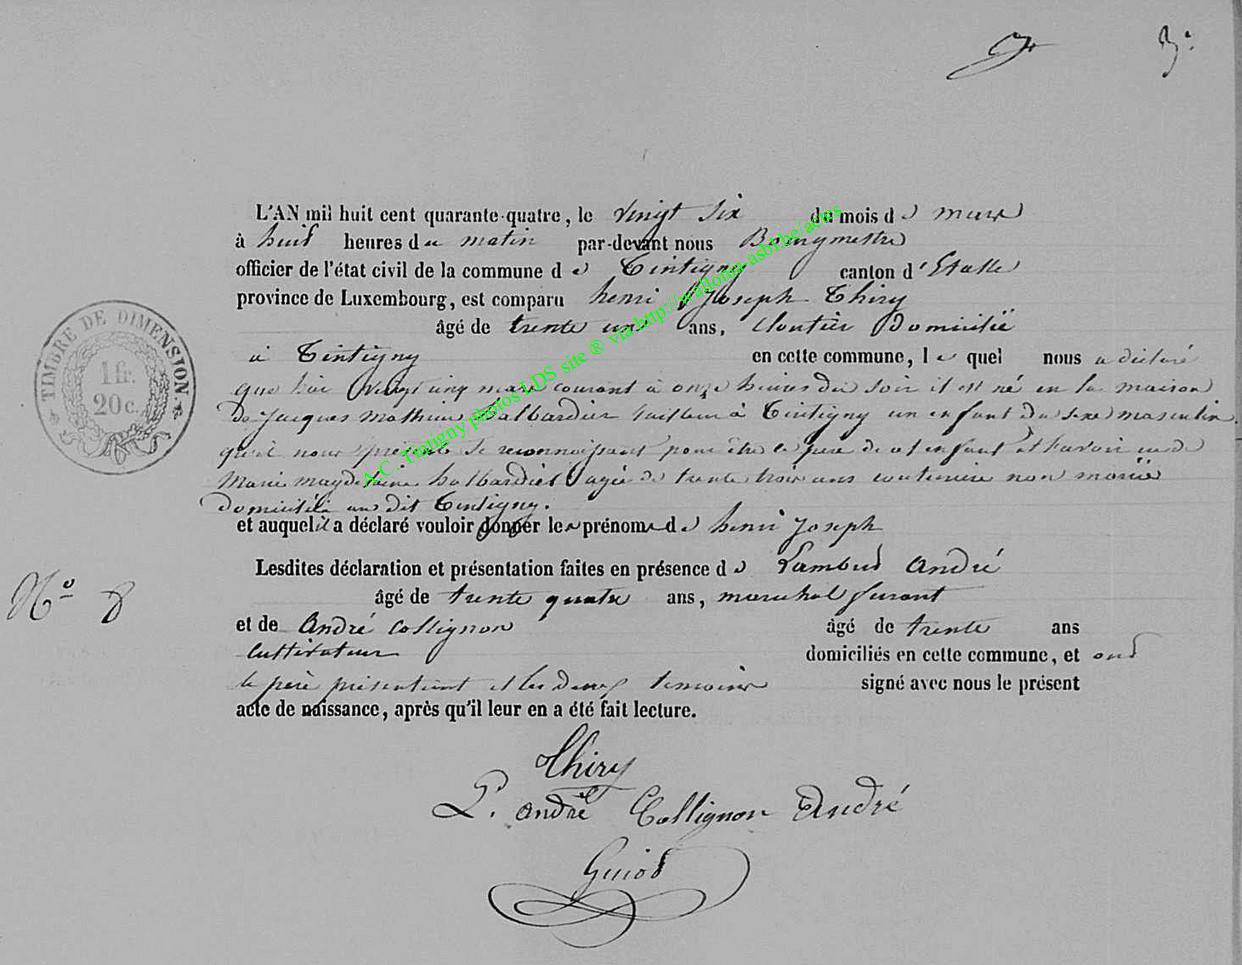 3.
L'AN mil huit cent quarante-quatre, le vingt six du mois de mars
à huit heures du matin par-devant nous Bourgmestre
officier de l'état civil de la commune de Tintigny canton d'Etalle
province de Luxembourg, est comparu henri Joseph Thiry
âgé de trente un ans, cloutier domicilié
à Tintigny en cette commune, lequel nous a déclaré
que hier vingt cinq mars courant à onze heures du soir il est né en la maison
de Jacques Mathieu halbardier tailleur à Tintigny un enfant du sexe masculin
qu'il nous présente se reconnaissant pour être le père de cet enfant et l'avoir eu de
Marie magdelaine halbardier agée de trente trois ans couturière non mariée
domiciliée au dit Tintigny.
et auquel il a déclaré vouloir donner les prénoms de henri Joseph
Lesdites déclaration et présentation faites en présence de Lambert André
âgé de trente quatre ans, maréchal ferrant
et de André Collignon âgé de trente ans
cultivateur domiciliés en cette commune, et ont
le père présentant et les deux temoins signé avec nous le présent
acte de naissance, après qu'il leur en a été fait lecture.
TIMBRE DE DIMENSION.
1 fr.
20 c.
N° 8
Thiry
L. andré Collignon André
Guiot
A.C. Tintigny photos LDS site ® via http://wallonia-asbl.be/actes